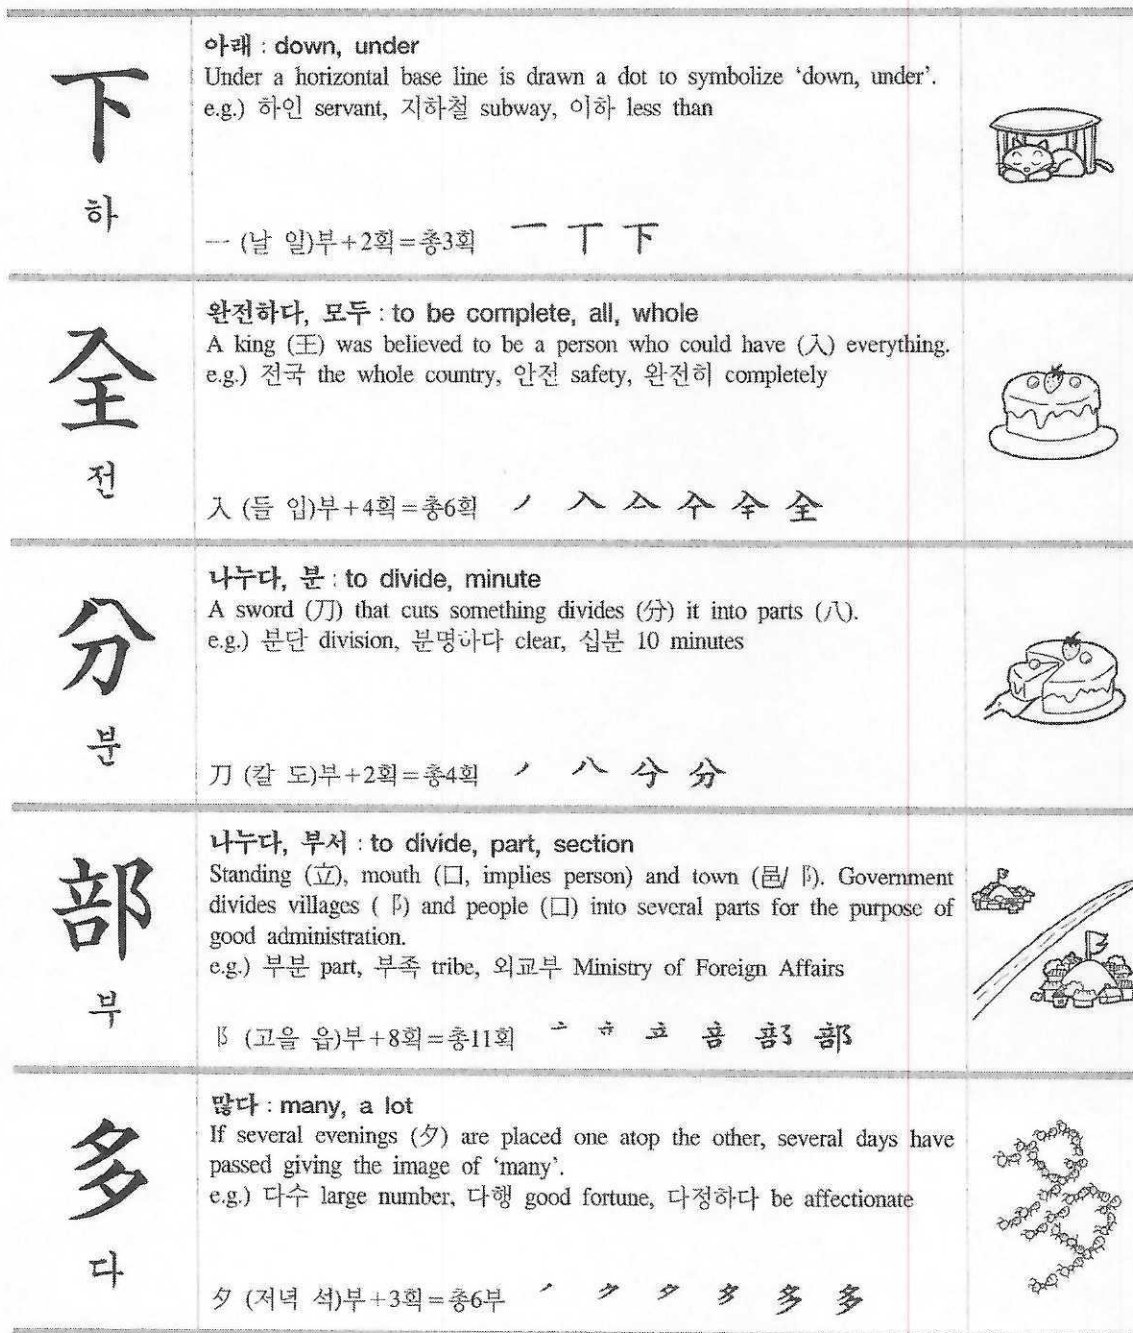 下
하
아래 : down, under
Under a horizontal base line is drawn a dot to symbolize ‘down, under’.
e.g.) 하인 servant, 지하철 subway, 이하 less than
一 (날 일)부+2획=총3획 一 丅 下
全
전
완전하다, 모두 : to be complete, all, whole
A king (王) was believed to be a person who could have (入) everything.
e.g.) 전국 the whole country, 안전 safety, 완전히 completely
入 (들 입)부+4획=총6획 ノ 入 亼 仐 仝 全
分
분
나누다, 분 : to divide, minute
A sword (刀) that cuts something divides (分) it into parts (八).
e.g.) 분단 division, 분명하다 clear, 십분 10 minutes
刀 (칼 도)부+2획=총4획 ノ 八 分 分
部
부
나누다, 부서 : to divide, part, section
Standing (立), mouth (口, implies person) and town (邑/阝). Government
divides villages (阝) and people (口) into several parts for the purpose of
good administration.
e.g.) 부분 part, 부족 tribe, 외교부 Ministry of Foreign Affairs
阝 (고을 읍)부+8획=총11획 亠 立 咅 部
多
다
많다 : many, a lot
If several evenings (夕) are placed one atop the other, several days have
passed giving the image of ‘many’.
e.g.) 다수 large number, 다행 good fortune, 다정하다 be affectionate
夕 (저녁 석)부+3획=총6부 ノ ク 夕 多 多 多